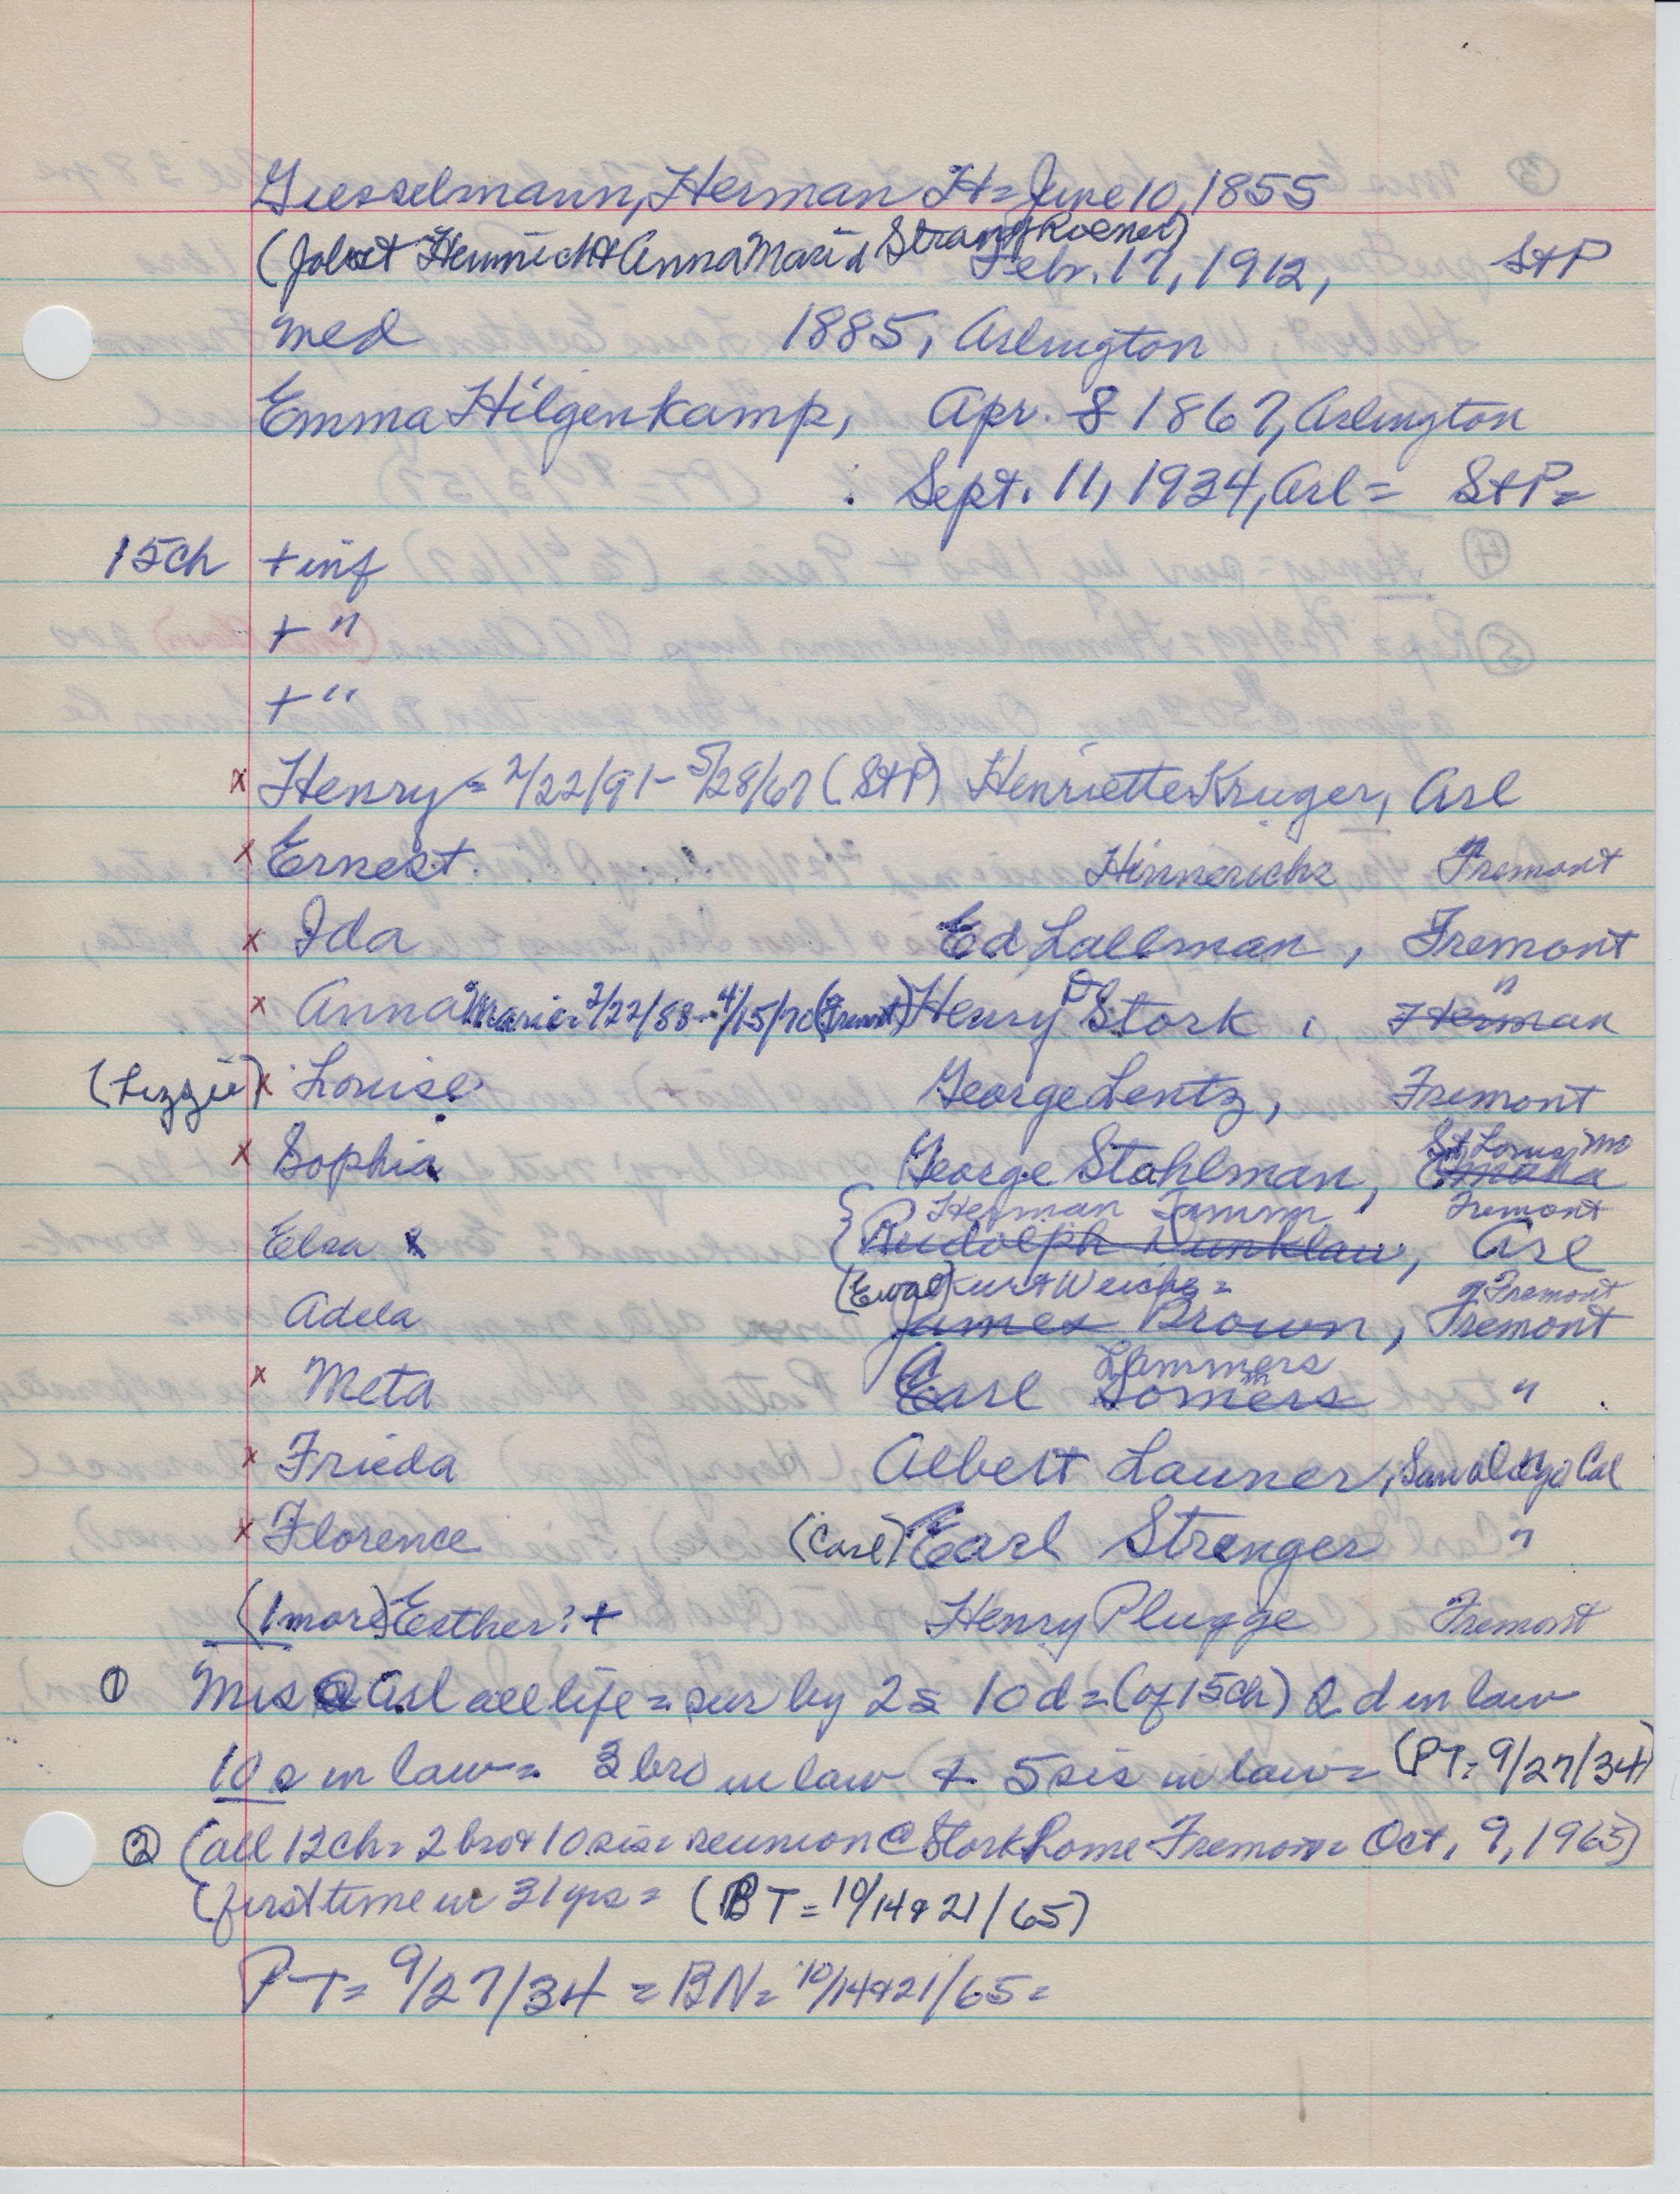 Giesselmann, Herman H = June 10, 1855
(Jobst Heinrich & Anna Maria Strangkoener)
Febr. 17, 1912, StP
med 1885, Arlington
Emma Hilgenkamp, Apr. 8 1867, Arlington
: Sept. 11, 1934, Arl = StP =
15ch + inf
+ "
+ "
x Henry = 2/22/91 - 5/28/67 (StP) Henriette Kruger, Arl
x Ernest Hinnerichs Fremont
x Ida Ed Lallman, Fremont
x Anna Marie = 2/22/88 - 4/15/70 (Fremt) Henry D Stork, Herman "
(Lizzie) x Louise George Lentz, Fremont
x Sophia George Stahlman, Omaha St Louis Mo
Herman Tamm Fremont
Elsa x { Rudolph Dunklau, Arl
(Ewald) Kurt Weichs = Fremont
Adela James Brown, Fremont
Lammers
x Meta Carl Somers "
x Frieda Albert Launer, San Diego Cal
x Florence (Carl) Earl Strenger "
(1 more) Esther? + Henry Plugge Fremont
① Mrs @ Arl all life = sur by 2 s 10 d = (of 15ch) 2 d in law
10 s in law = 3 bro in law & 5 sis in law = (PT = 9/27/34)
② (all 12ch = 2 bro & 10 sis = reunion @ Stork home Fremont = Oct. 9, 1965)
(first time in 31 yrs = (BT = 10/14 & 21/65)
PT = 9/27/34 = BN = 10/14 & 21/65 =